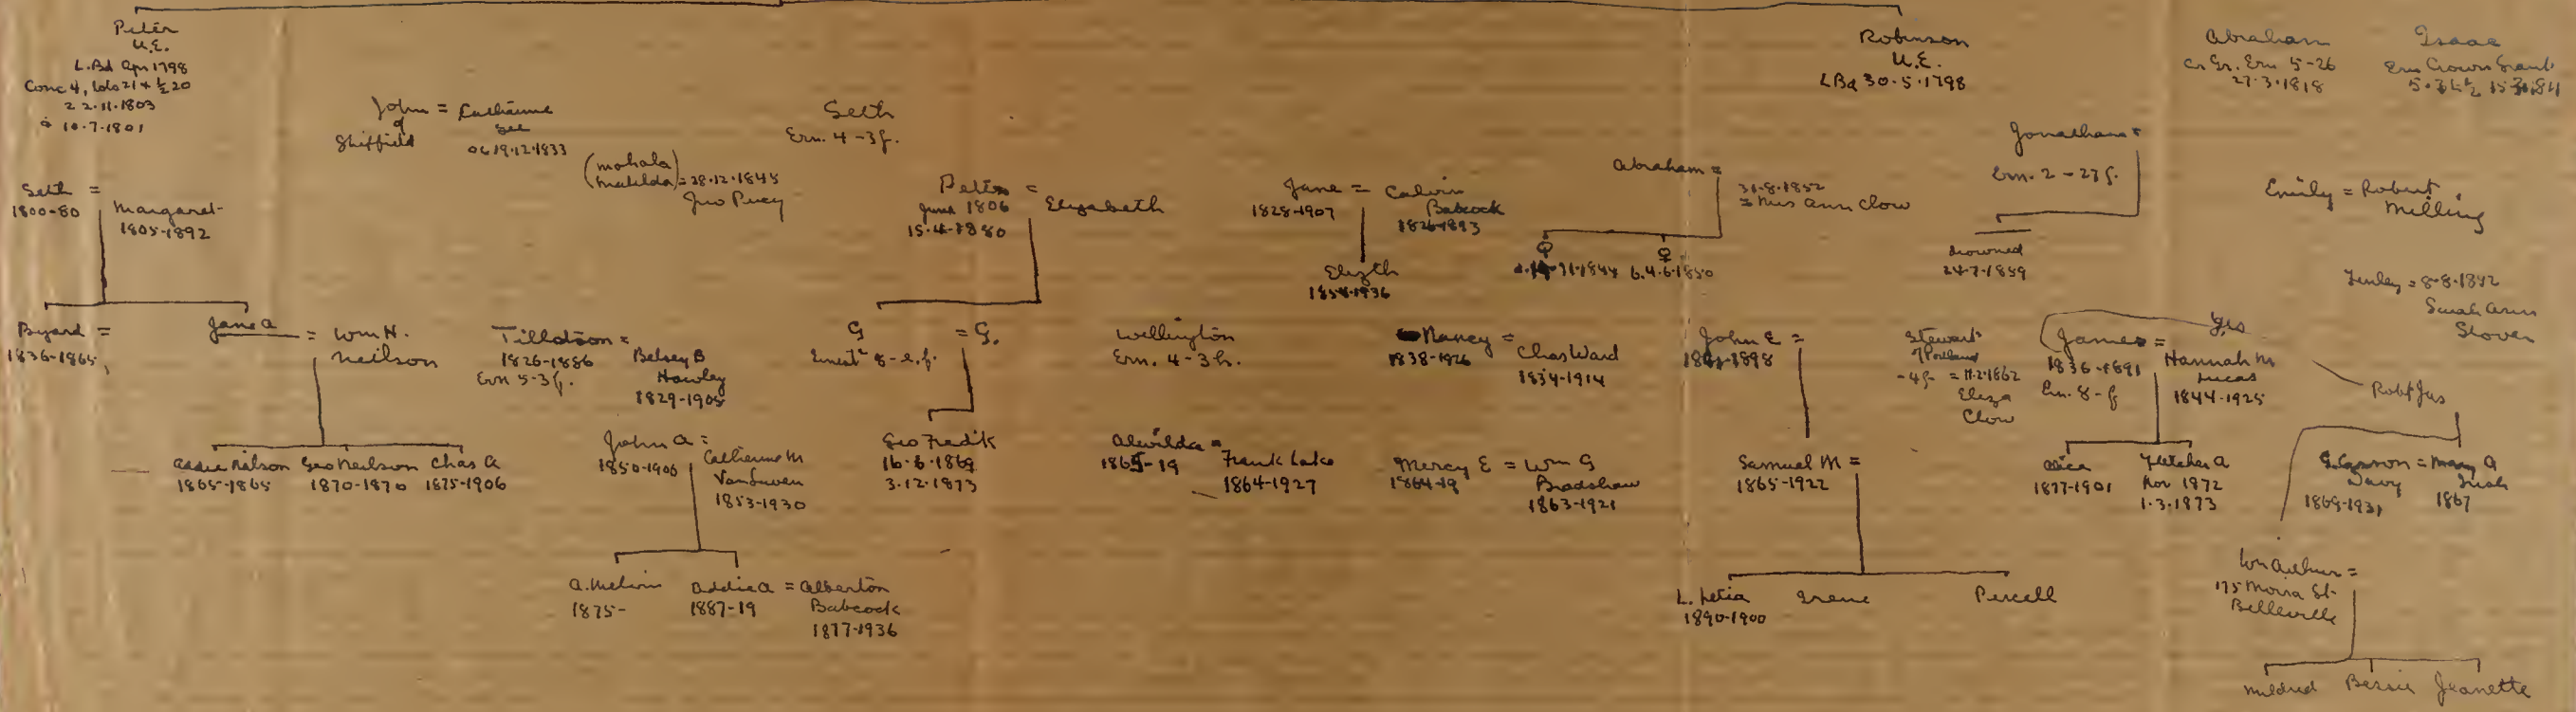 Peter
U.E.
L.Bd Apr 1798
Conc 4, lots 21 + ½ 20
22.11.1803
10.7.1801
Robinson
U.E.
LBd 30.5.1798
Abraham
Cr Gr. Ern 5-26
27.3.1818
Isaac
Ern Crown Grant
John = Catherine
of
Sheffield
See
19.12.1833
Seth
Ern. 4-3f.
(Mahala)
(Matilda) = 28.12.1845
Jno Pucy
Seth =
1800-80
Margaret
1805-1892
Peter =
June 1806
15.4.1880
Elizabeth
Jane = Calvin
1828-1907
Babcock
1826-1893
Elizth
1858-1936
Abraham =
31.8.1852
= Mrs Ann Clow
♀ ♀
11.1844 6.4.6.1850
Jonathan =
Ern. 2-27f.
drowned
24.7.1859
Emily = Robert
Milling
= 8.8.1842
Sarah Ann
Stover
Byard =
1836-1865,
Jane A = Wm H.
Neilson
Tillotson =
1826-1886
Ern 5-3f.
Betsey B
Hawley
1829-1905
G = G.
8-e.f.
Wellington
Ern. 4-3h.
Nancy =
1838-1926
Chas Ward
1834-1914
John E =
1841-1898
Stewart
of Portland
-4f- = 11.2.1862
Eliza
Clow
James =
1836-1891
Ern. 8-f
yes
Hannah M
Lucas
1844-1925
Robt Jas
Addie Nilson
1865-1865
Geo Neilson
1870-1870
Chas A
1875-1906
John A =
1850-1906
Catherine M
VanLuven
1853-1930
Geo Fredk
16.6.1869
3.12.1873
Alwilda =
1865-19
Frank Lake
1864-1927
Mercy E = Wm G
1864-19
Bradshaw
1863-1921
Samuel M =
1865-1922
Alica
1877-1901
Fletcher A
Nov 1872
1.3.1873
= Mary A
1869-1931
Irish
1867
A. Melvin
1875-
Addie A = Alberton
1887-19
Babcock
1877-1936
L. Letia
1890-1900
Irene
Percell
Wm Arthur =
175 Moira St.
Belleville
Mildred Bessie Jeanette